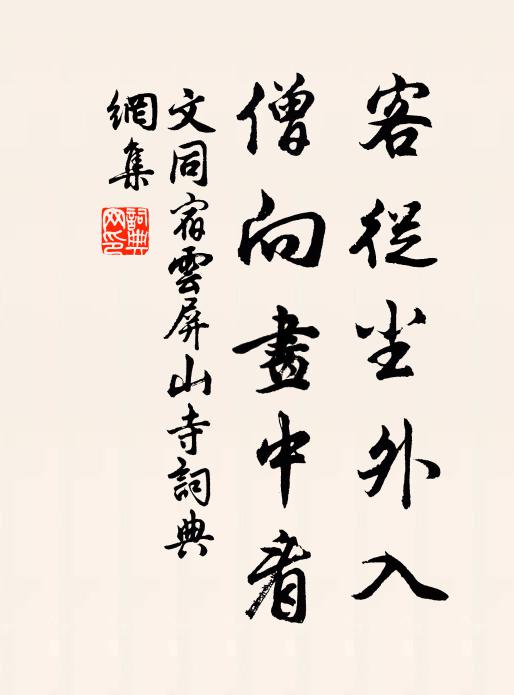 客從尘外入
僧向畫中看
文同宿雲屏山寺詞典
網集
詞典
网印